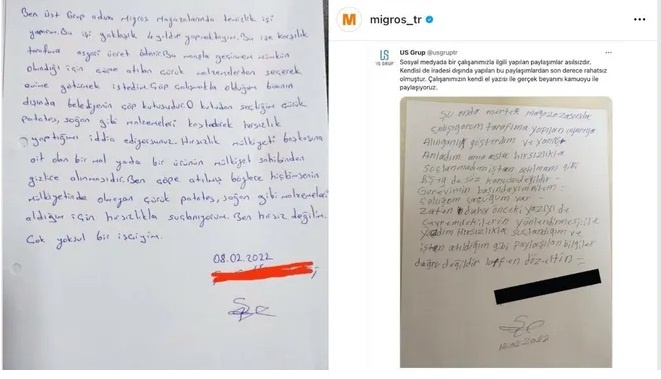 Ben Üst Grup adına Migros Mağazalarında temizlik işi
yaparım. Bu işi yaklaşık 4 yıldır yapmaktayım. Bu işe karşılık
tarafıma asgari ücret ödenir. Bu maaşla geçinmem mümkün
olmadığı için çöpe atılan çürük malzemelerden seçerek
evime götürmek istedim. Çöp çalışmakta olduğum binanın
dışında belediyenin çöp kutusudur. O kutudan seçtiğim çürük
patates, soğan gibi malzemeleri hırsızlık
yaptığımı iddia ediyorsunuz. Hırsızlık mülkiyeti başkasına
ait olan bir mal yada bir ürünün mülkiyet sahibinden
gizlice alınmasıdır. Ben çöpe atılmış böylece hiçkimsenin
mülkiyetinde olmayan çürük patates, soğan gibi malzemeleri
aldığım için hırsızlıkla suçlanıyorum. Ben hırsız değilim.
Çok yoksul bir işçiyim.
08.02.2022
migros_tr
US Grup @usgruptr
Sosyal medyada bir çalışanımızla ilgili yapılan paylaşımlar asılsızdır.
Kendisi de iradesi dışında yapılan bu paylaşımlardan son derece rahatsız
olmuştur. Çalışanımızın kendi el yazısı ile gerçek beyanını kamuoyu ile
paylaşıyoruz.
Şu anda
çalışıyorum tarafıma yapılan
Alınganlık gösterdim ve yanlış
Anladım ama asla hırsızlıkla
Suçlanmadım işten atılmam gibi
söz konusu değildir
Görevimin başındayım
çoluğum çocuğum var
Zaten daha önceki yazıyı da
yönlendirmesi ile
yazdım Hırsızlıkla suçlandığım ve
işten atıldığım gibi paylaşılan bilgiler
doğru değildir lütfen düzeltin